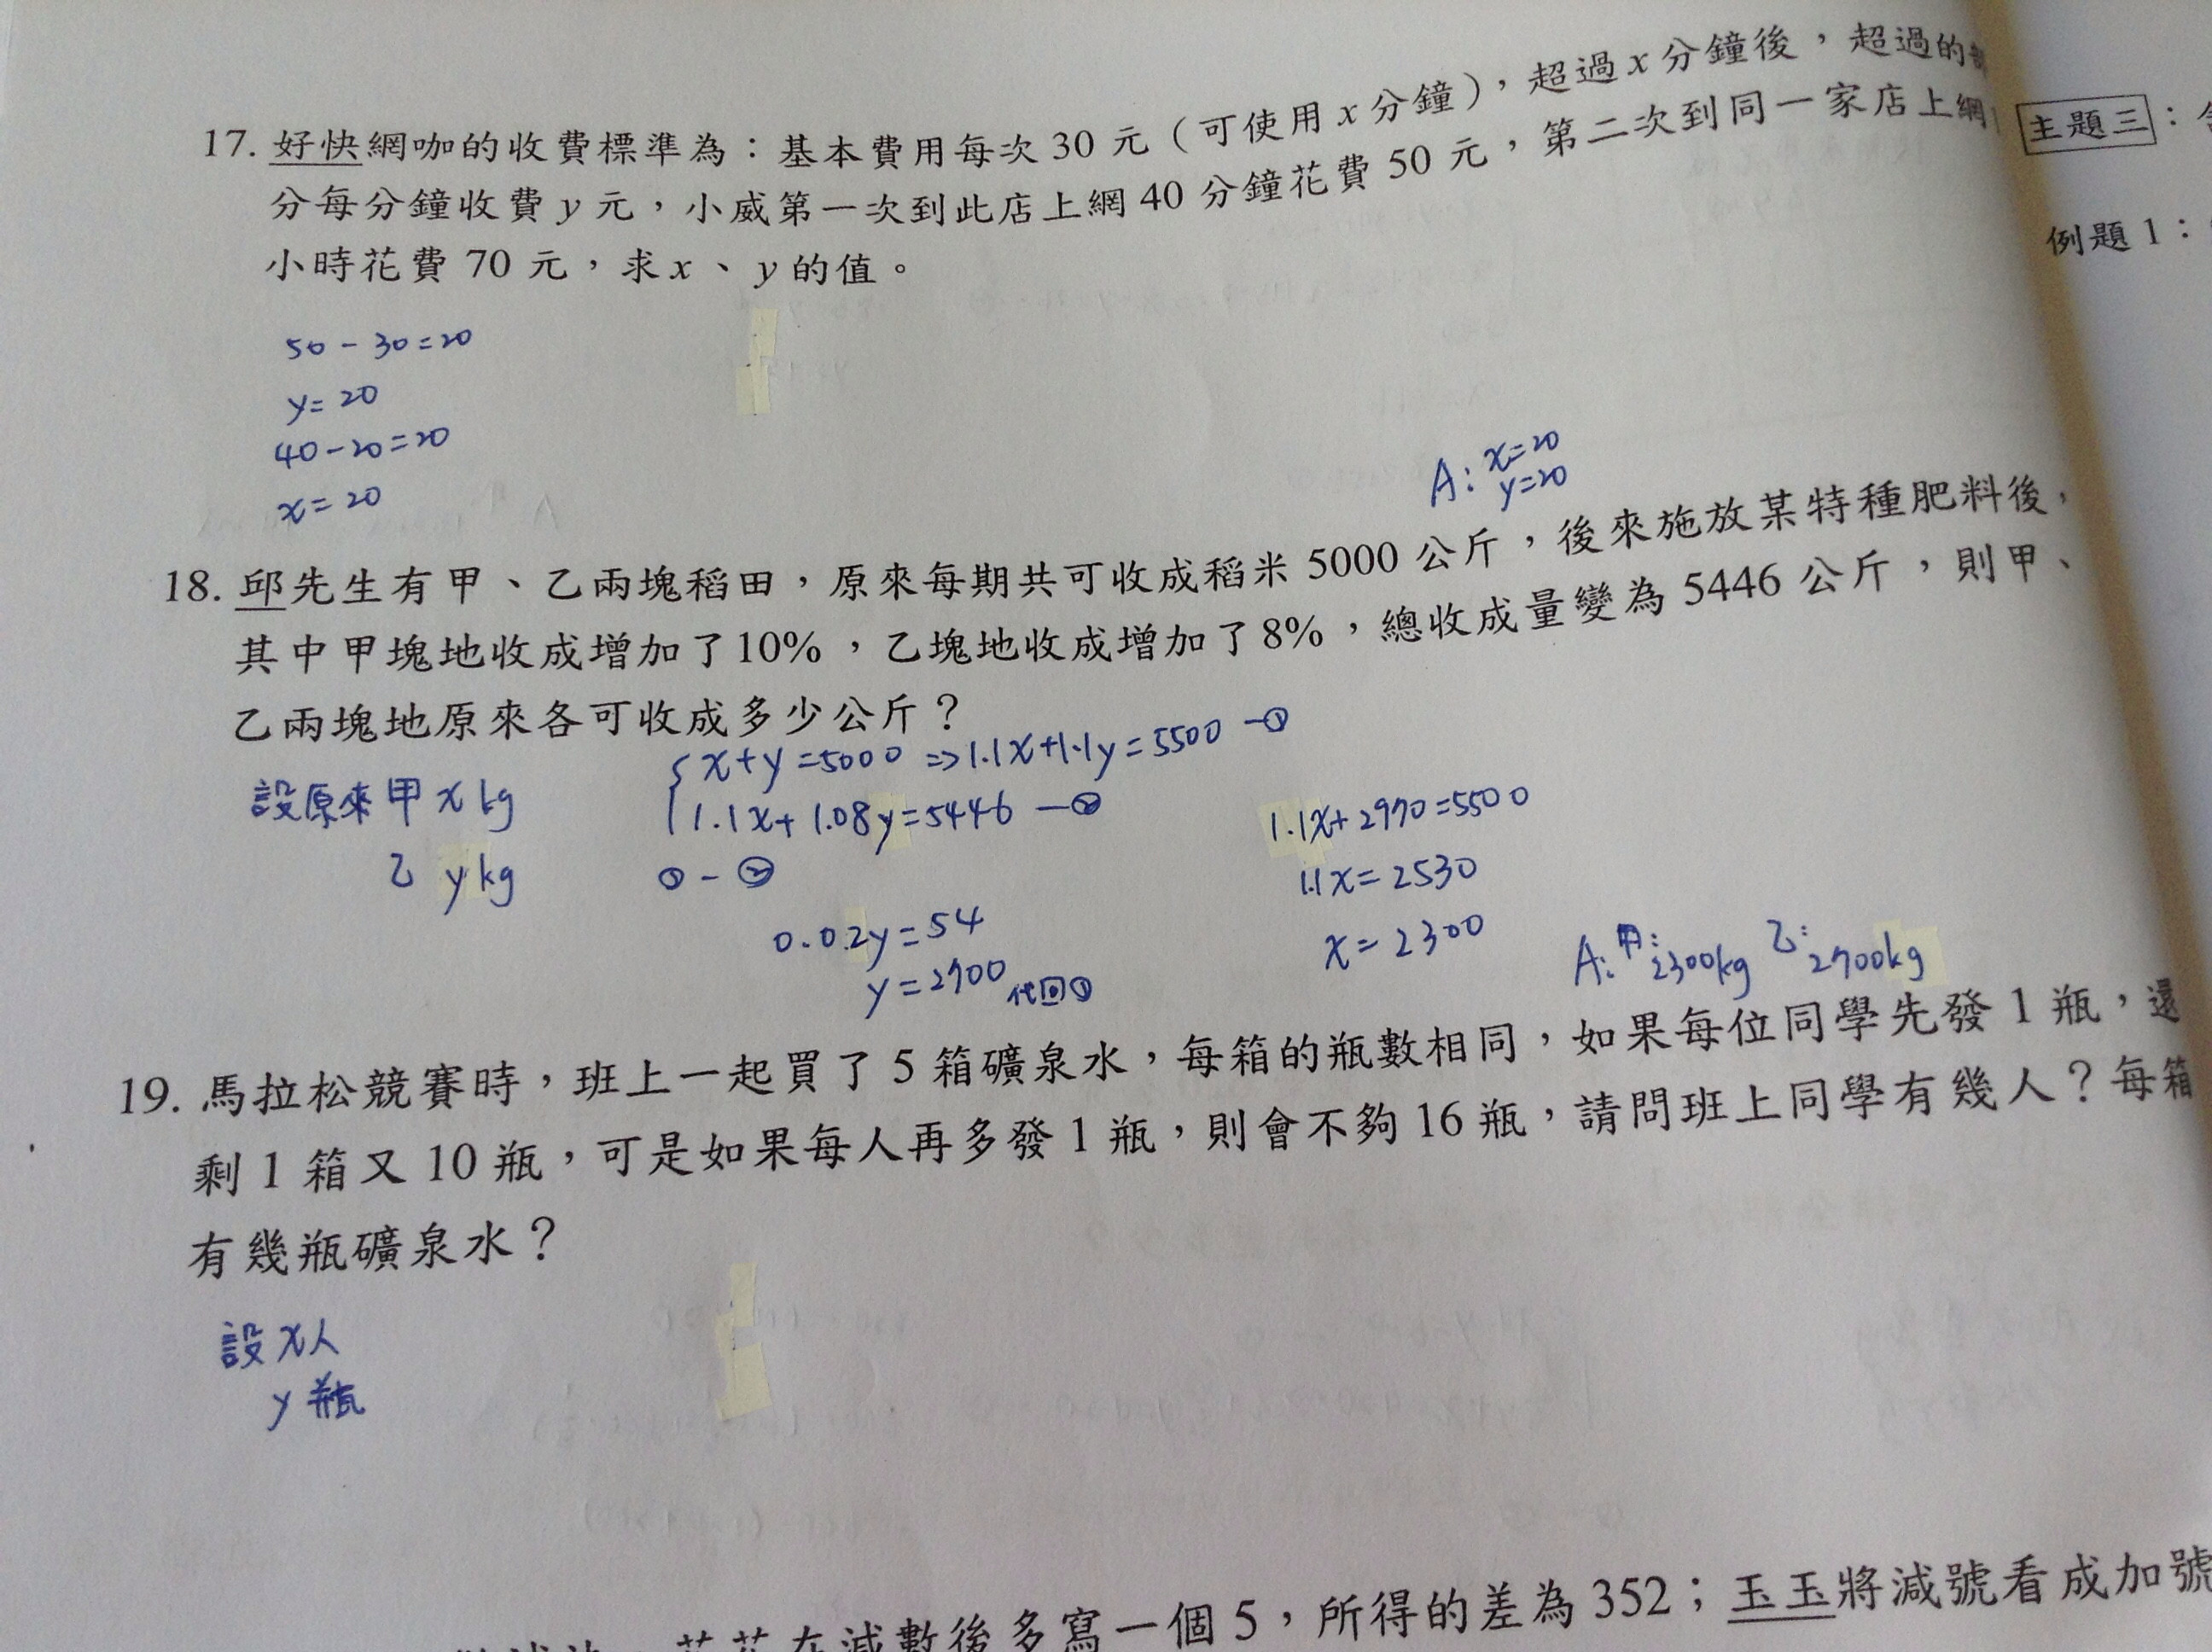 17. 好快網咖的收費標準為：基本費用每次 30 元（可使用 x 分鐘），超過 x 分鐘後，超過的
分每分鐘收費 y 元，小威第一次到此店上網 40 分鐘花費 50 元，第二次到同一家店上網
小時花費 70 元，求 x 、 y 的值。
50 - 30 = 20
y = 20
40 - 20 = 20
x = 20
A: x = 20
y = 20
18. 邱先生有甲、乙兩塊稻田，原來每期共可收成稻米 5000 公斤，後來施放某特種肥料後，
其中甲塊地收成增加了 10%，乙塊地收成增加了 8%，總收成量變為 5446 公斤，則甲、
乙兩塊地原來各可收成多少公斤？
設原來甲 x kg
乙 y kg
{ x + y = 5000 => 1.1x + 1.1y = 5500 —①
1.1x + 1.08y = 5446 —②
① - ②
0.02y = 54
y = 2700 代回①
1.1x + 2970 = 5500
1.1x = 2530
x = 2300
A: 甲: 2300kg 乙: 2700kg
19. 馬拉松競賽時，班上一起買了 5 箱礦泉水，每箱的瓶數相同，如果每位同學先發 1 瓶，還
剩 1 箱又 10 瓶，可是如果每人再多發 1 瓶，則會不夠 16 瓶，請問班上同學有幾人？每箱
有幾瓶礦泉水？
設 x 人
y 瓶
在減數後多寫一個 5，所得的差為 352；玉玉將減號看成加號
主題三：
例題 1：